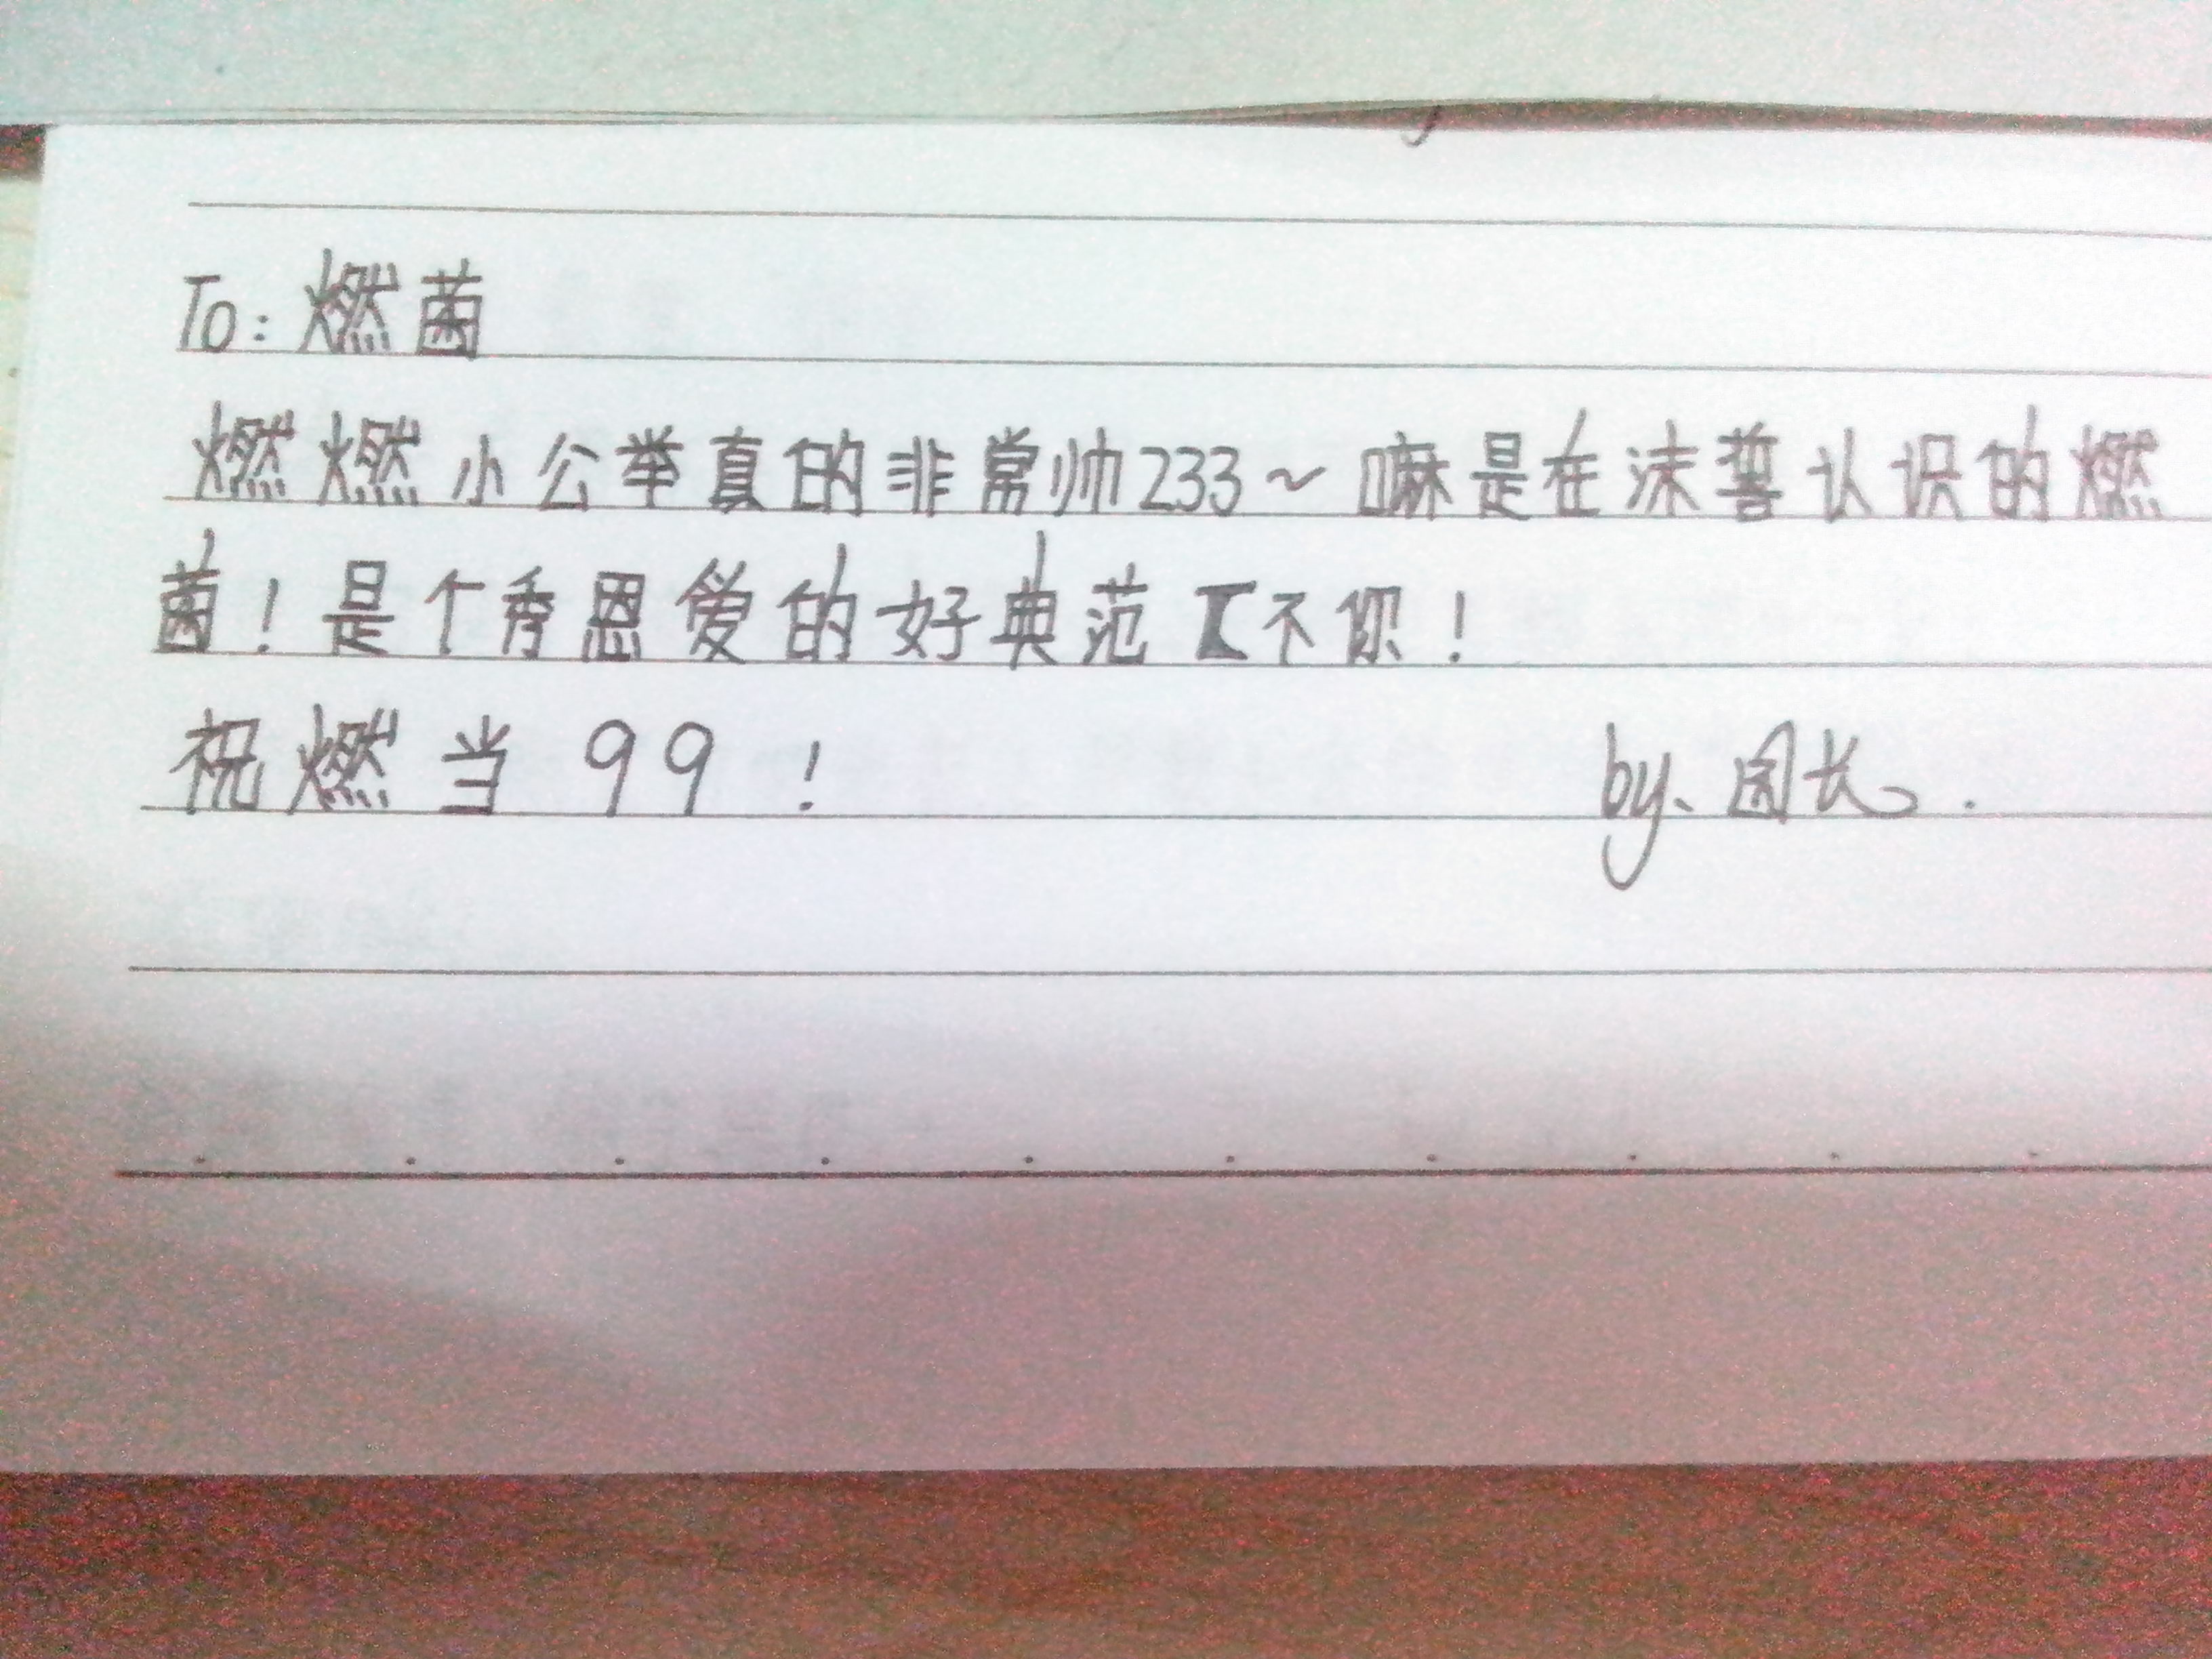 To:燃菌
燃燃小公举真的非常帅233~嘛是在沫誓认识的燃
菌!是个秀恩爱的好典范【不你!
祝燃当99!
by、园长。.